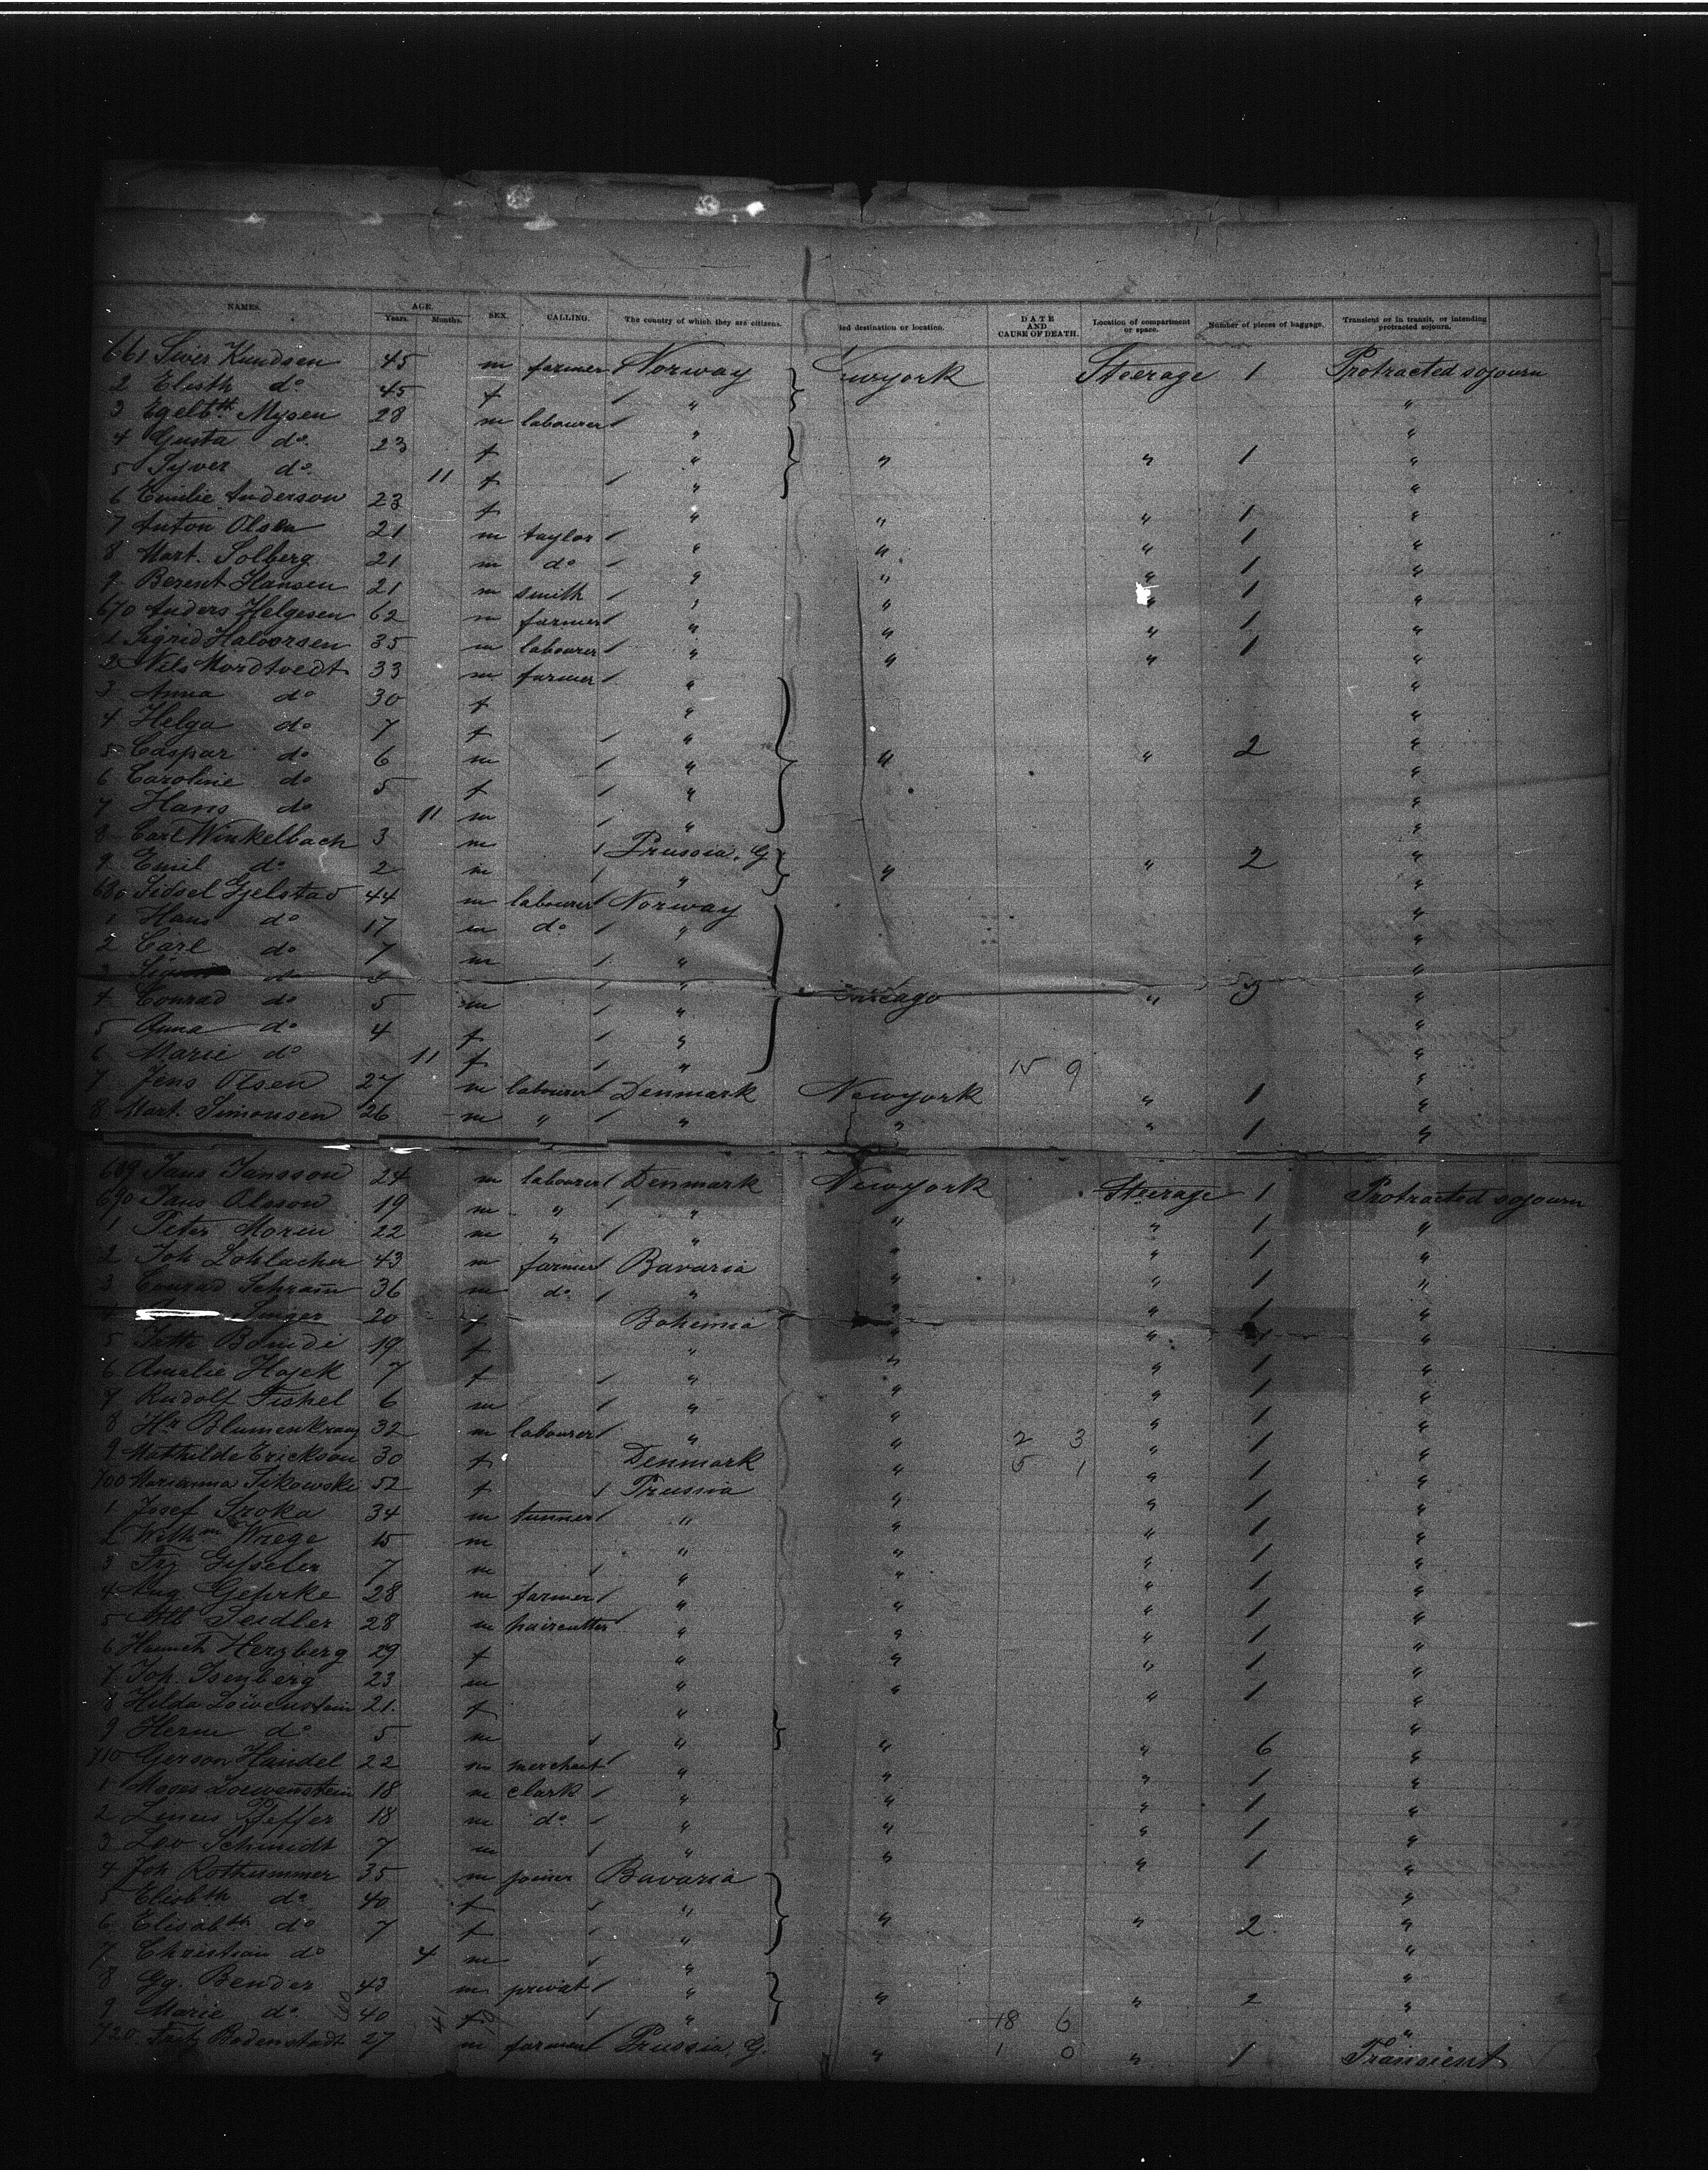 NAMES. AGE. Years. Months. SEX. CALLING. The country of which they are citizens. ted destination or location. DATE AND CAUSE OF DEATH. Location of compartment or space. Number of pieces of baggage. Transient or in transit, or intending protracted sojourn.
661 Siver Knudsen 45 m farmer Norway ewyork Steerage 1 Protracted sojourn
2 Elisth do 45 f " "
3 Egelbtt Mysen 28 m labourer " "
4 Gusta do 23 f " " " 1 "
5 Syver do 11 f " "
6 Emilie Anderson 23 f " " " 1 "
7 Anton Olsen 21 m taylor " " " 1 "
8 Mart. Solberg 21 m do " " " 1 "
9 Berent Hansen 21 m smith " " " 1 "
670 Anders Helgesen 62 m farmer " " " 1 "
1 Sigrid Halvorsen 35 m labourer " " " 1 "
2 Nils Mordtvedt 33 m farmer " "
3 Anna do 30 f " "
4 Helga do 7 f " "
5 Caspar do 6 m " " " 2 "
6 Caroline do 5 f " "
7 Hans do 11 m " "
8 Carl Winkelbach 3 m Prussia, G "
9 Emil do 2 m " " " 2 "
680 Sidsel Gjelstad 44 m labourer Norway "
1 Hans do 17 m do " "
2 Carl do 7 m " "
3 do 6 " "
4 Conrad do 5 m " Chicago " "
5 Anna do 4 f " "
6 Marie do 11 f " 15 9 "
7 Jens Olsen 27 m labourer Denmark Newyork " 1 "
8 Mart. Simonsen 26 m " " " " 1 "
689 Jans Jansson 24 m labourer Denmark Newyork Steerage 1 Protracted sojourn
690 Jans Olsson 19 m " " " " 1 "
1 Peter Morin 22 m " " " " 1 "
2 Joh Lohlacher 43 m farmer Bavaria " " 1 "
3 Conrad Schram 36 m do " " " 1 "
4 Singer 20 f Bohemia " " 1 "
5 Bondi 19 f " " " 1 "
6 Amalie Hajek 7 f " " " 1 "
7 Rudolf Fishel 6 m " " " 1 "
8 Hr Blumenkranz 32 m labourer " " 2 3 " 1 "
9 Mathilde Erickson 30 f Denmark " 5 1 " 1 "
700 Marianna Sikowske 52 f Prussia " " 1 "
1 Josef Sroka 34 m tunner " " " 1 "
2 Wilhm Wrege 15 m " " " 1 "
3 Frz Gisseler 7 m " " " 1 "
4 Aug Gehrke 28 m farmer " " " 1 "
5 Alb Seidler 28 m haircutter " " " 1 "
6 Hannch Herzberg 29 f " " " 1 "
7 Joh. Isenberg 23 m " " " 1 "
8 Hilda Löwenstein 21. f " "
9 Herm do 5 m " " " 6 "
710 Gerson Haindel 22 m merchant " " " 1 "
1 Moses Loewenstein 18 m clark " " " 1 "
2 Pfeffer 18 m do " " " 1 "
3 Leo Schmidt 7 m " " " 1 "
4 Joh Rothummer 35 m joiner Bavaria "
5 Elisbth do 40 f " "
6 Elisabth do 7 f " " " 2 "
7 Christian do 4 m " "
8 Gg. Bender 43 m privat " " " 2 "
9 Marie do 40 f " 18 6 "
720 Fritz Bodenstadt 27 m farmer Prussia, G. " 1 0 " 1 Transient